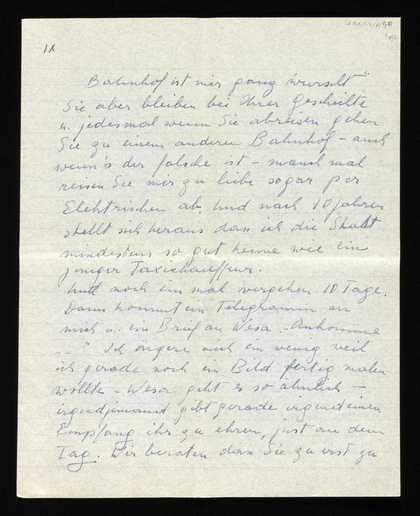 IX
Bahnhof ist mir ganz "wurscht"
Sie aber bleiben bei Ihrer Geschichte
u. jedesmal wenn Sie abreisen gehen
Sie zu einem anderen Bahnhof – auch
wenn's der falsche ist – manchmal
reisen Sie mir zu liebe sogar per
Elektrischen ab. Und nach 10 Jahren
stellt sich heraus dass ich die Stadt
mindestens so gut kenne wie ein
junger Taxichauffeur.
Und noch ein mal vergehen 10 Tage.
Dann kommt ein Telegramm an
mich u. ein Brief an Wesa "Ankomme
..." Ich ärgere mich ein wenig weil
ich gerade noch ein Bild fertig malen
wollte – Wesa geht es so ähnlich –
irgendjemand gibt gerade irgendeinen
Empfang ihr zu ehren, just an dem
Tag. Wir beraten dass Sie zu erst zu